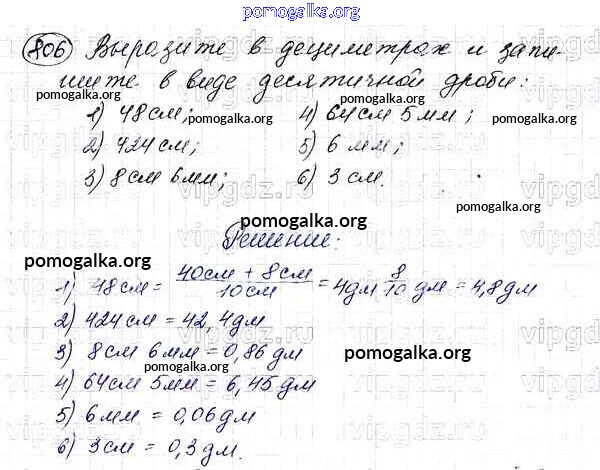 pomogalka.org
806 Выразите в дециметрах и запи-
шите в виде десятичной дроби:
pomogalka.org
pomogalka.org
1) 48 см; 4) 64 см 5 мм;
pomogalka.org
pomogalka.org
2) 424 см; 5) 6 мм;
3) 8 см 6 мм; 6) 3 см.
pomogalka.org
pomogalka.org
vipgdz.ru
pomogalka.org
Решение:
pomogalka.org
1) 48 см = 40 см + 8 см / 10 см = 4 дм 8/10 дм = 4,8 дм
2) 424 см = 42,4 дм
3) 8 см 6 мм = 0,86 дм
pomogalka.org
4) 64 см 5 мм = 6,45 дм
5) 6 мм = 0,06 дм
6) 3 см = 0,3 дм.